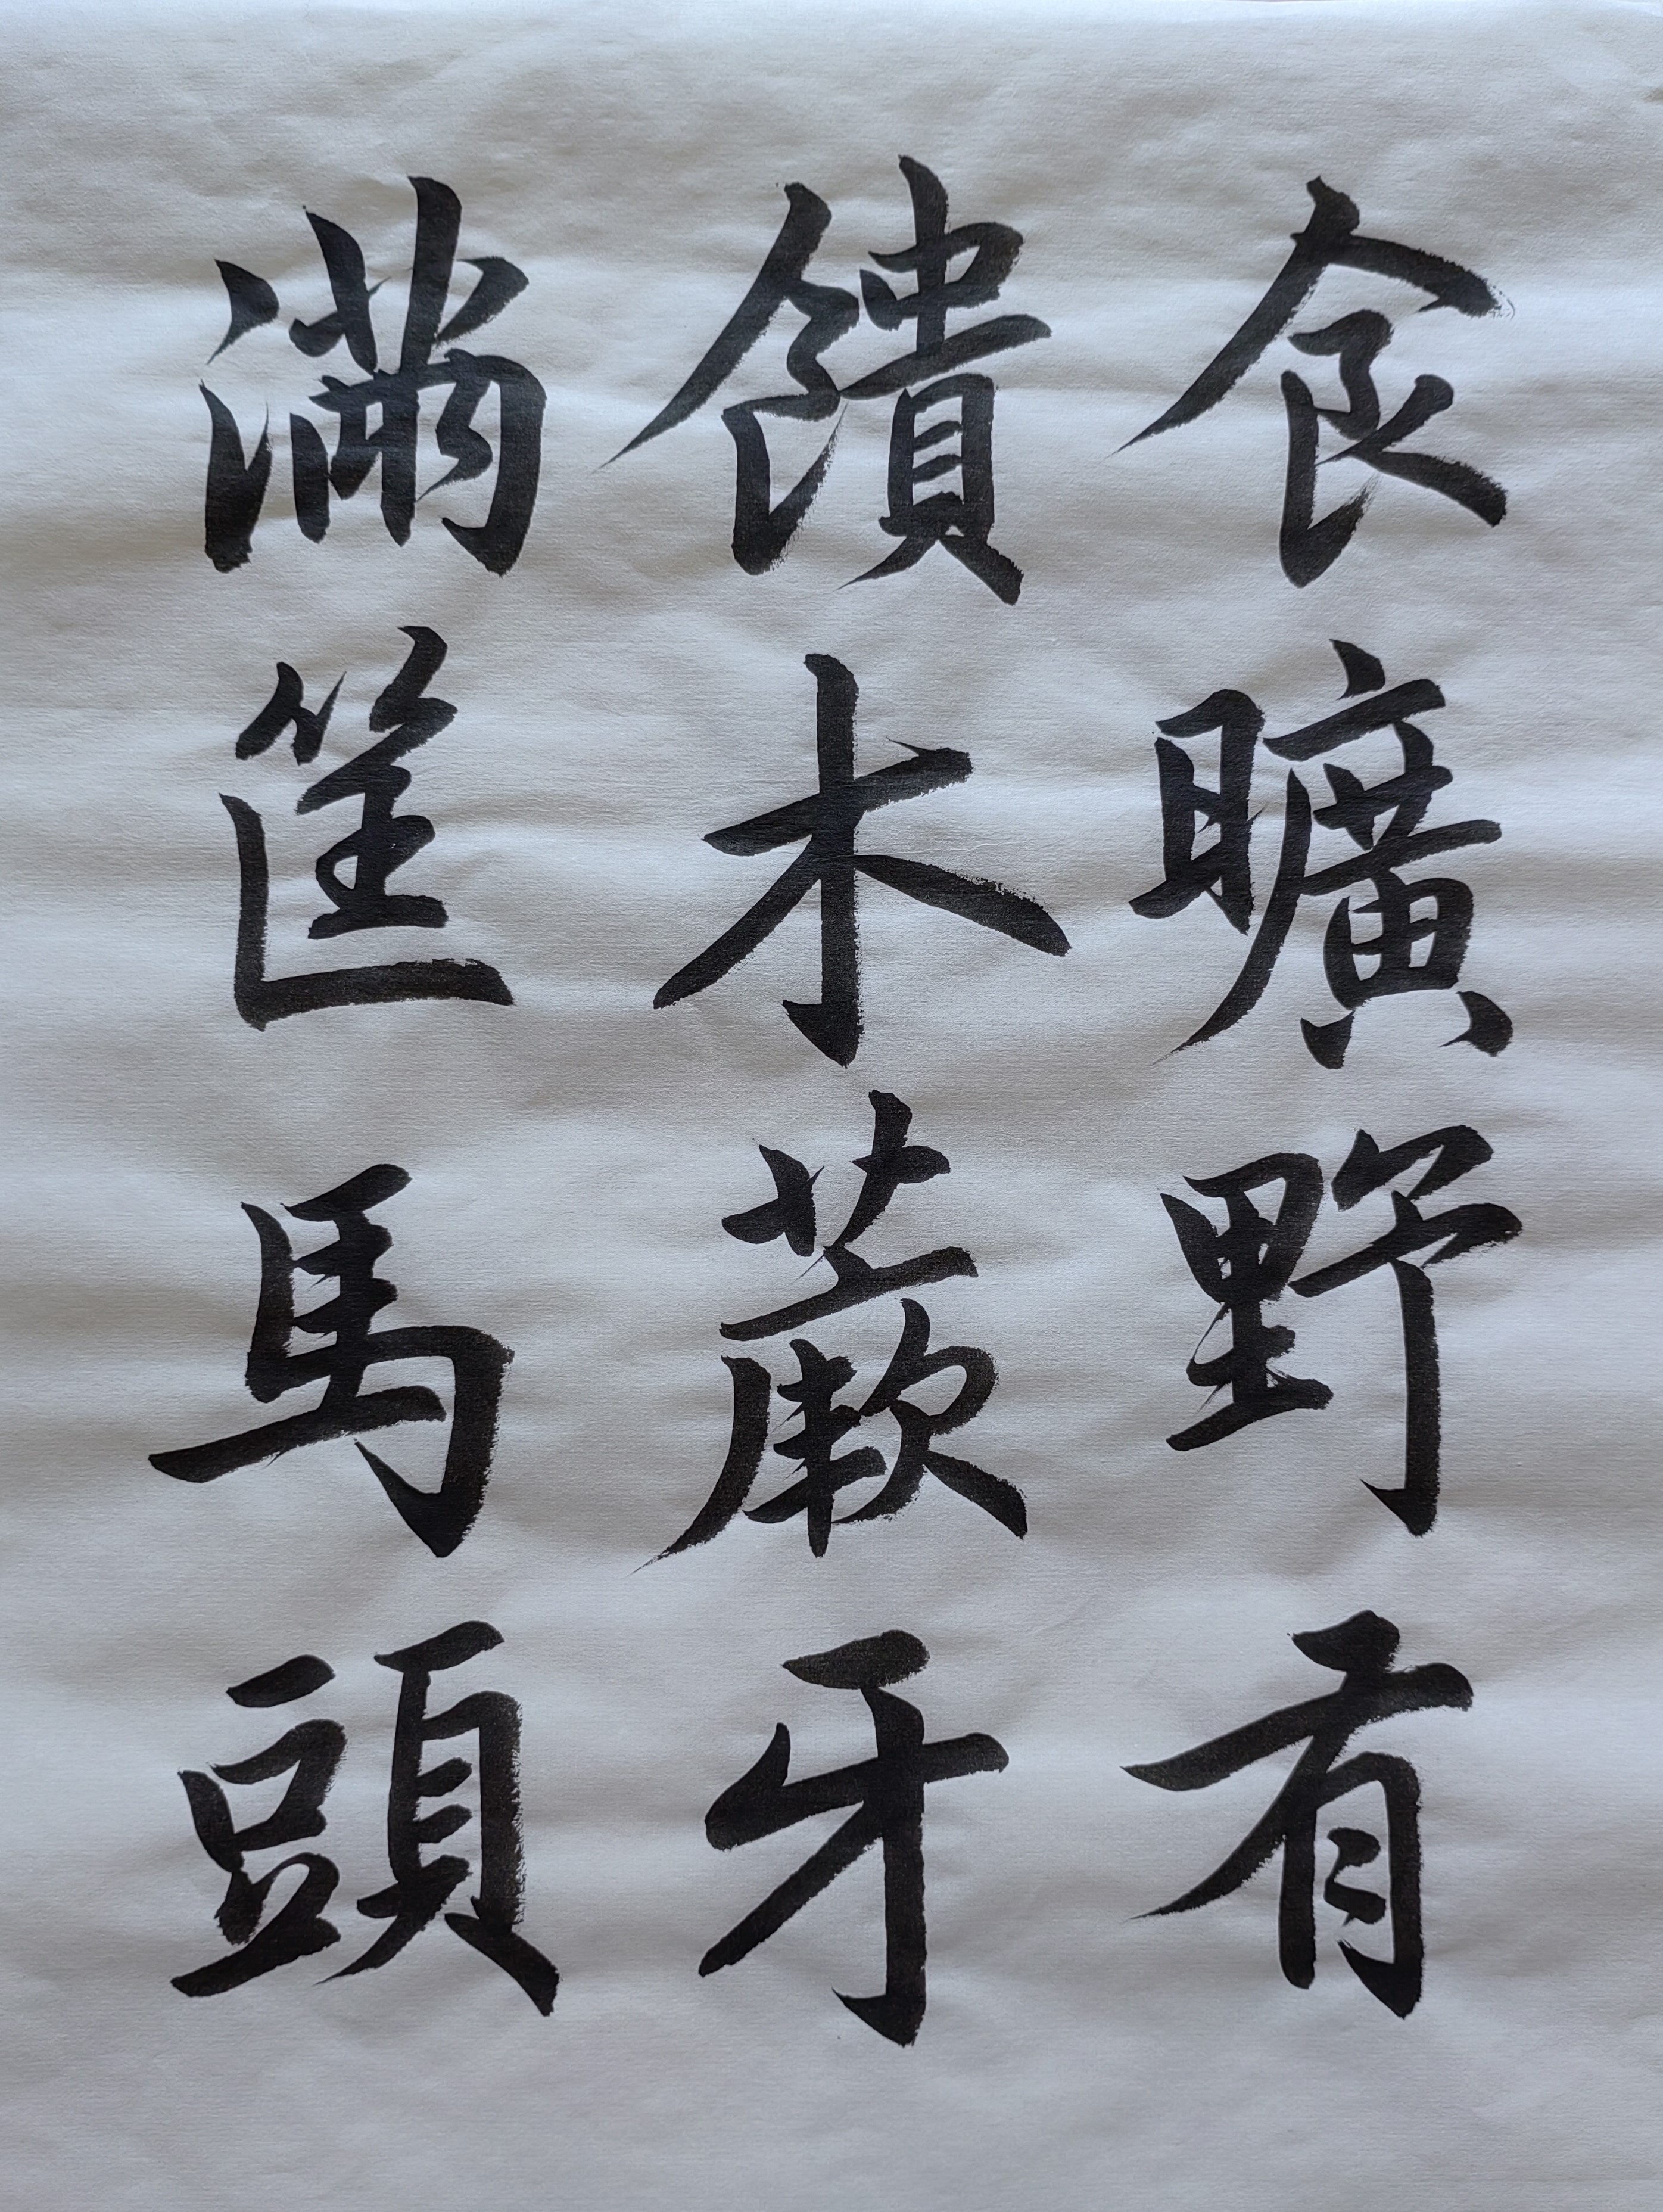 食曠野有
饋木蕨牙
滿筐馬頭